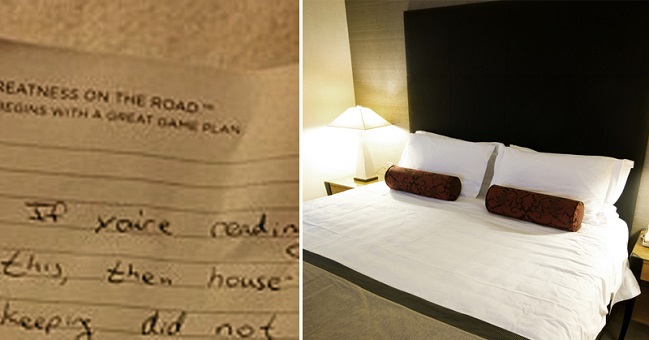 REATNESS ON THE ROAD™
BEGINS WITH A GREAT GAME PLAN
If you're readin
this, then house-
keeping did not